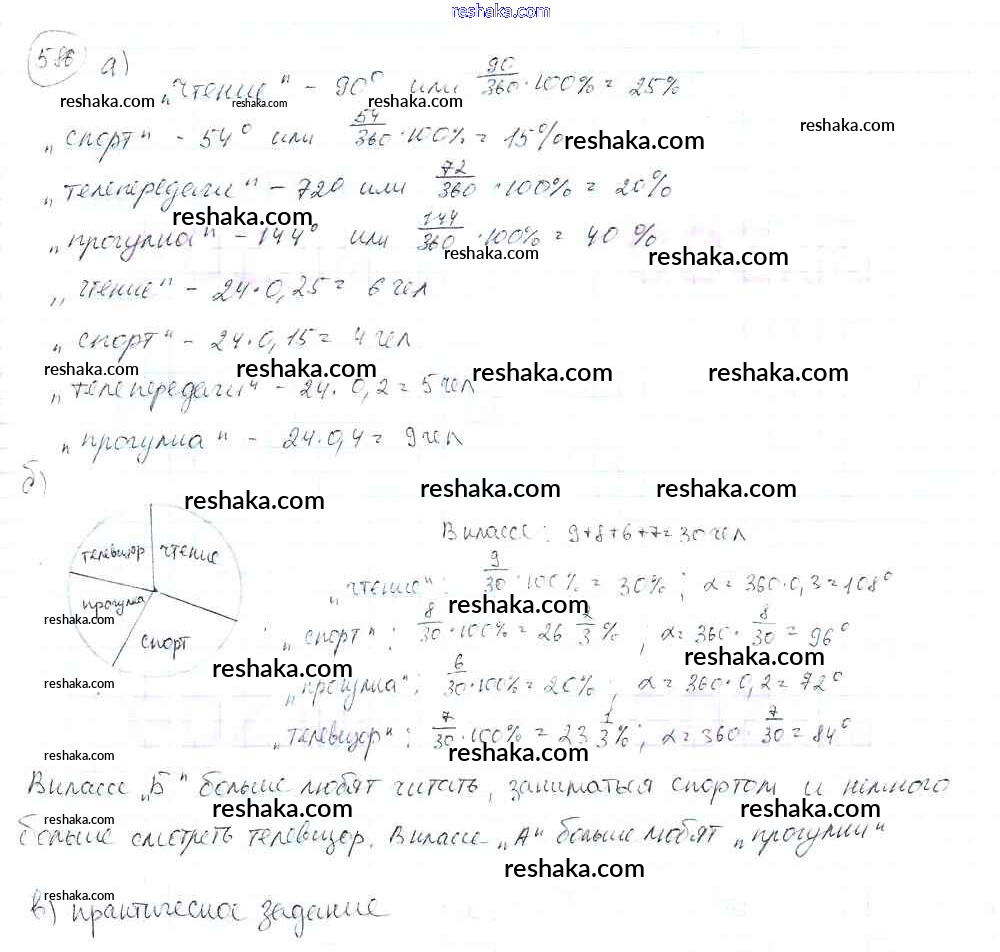 reshaka.com
586 а)
„чтение" - 90° или 90/360 · 100% = 25%
reshaka.com reshaka.com reshaka.com
„спорт" - 54° или 54/360 · 100% = 15%
reshaka.com reshaka.com
„телепередачи" - 720 или 72/360 · 100% = 20%
reshaka.com
„прогулка" - 144° или 144/360 · 100% = 40%
reshaka.com reshaka.com
„чтение" - 24·0,25 = 6 чел
„спорт" - 24·0,15 = 4 чел
reshaka.com reshaka.com reshaka.com reshaka.com
„телепередачи" - 24·0,2 = 5 чел
„прогулка" - 24·0,4 = 9 чел
б)
reshaka.com reshaka.com reshaka.com
В классе: 9+8+6+7=30 чел
телевизор чтение
„чтение": 9/30 · 100% = 30%; α = 360·0,3 = 108°
прогулка
reshaka.com reshaka.com
спорт
„спорт": 8/30 · 100% = 26 2/3 %; α = 360 · 8/30 = 96°
reshaka.com reshaka.com
„прогулка": 6/30 · 100% = 20%; α = 360·0,2 = 72°
reshaka.com
„телевизор": 7/30 · 100% = 23 1/3 %; α = 360 7/30 = 84°
reshaka.com reshaka.com
В классе „Б" больше любят читать, заниматься спортом и немного
reshaka.com reshaka.com reshaka.com
больше смотреть телевизор. В классе „А" больше любят „прогулки"
reshaka.com
reshaka.com
в) практическое задание